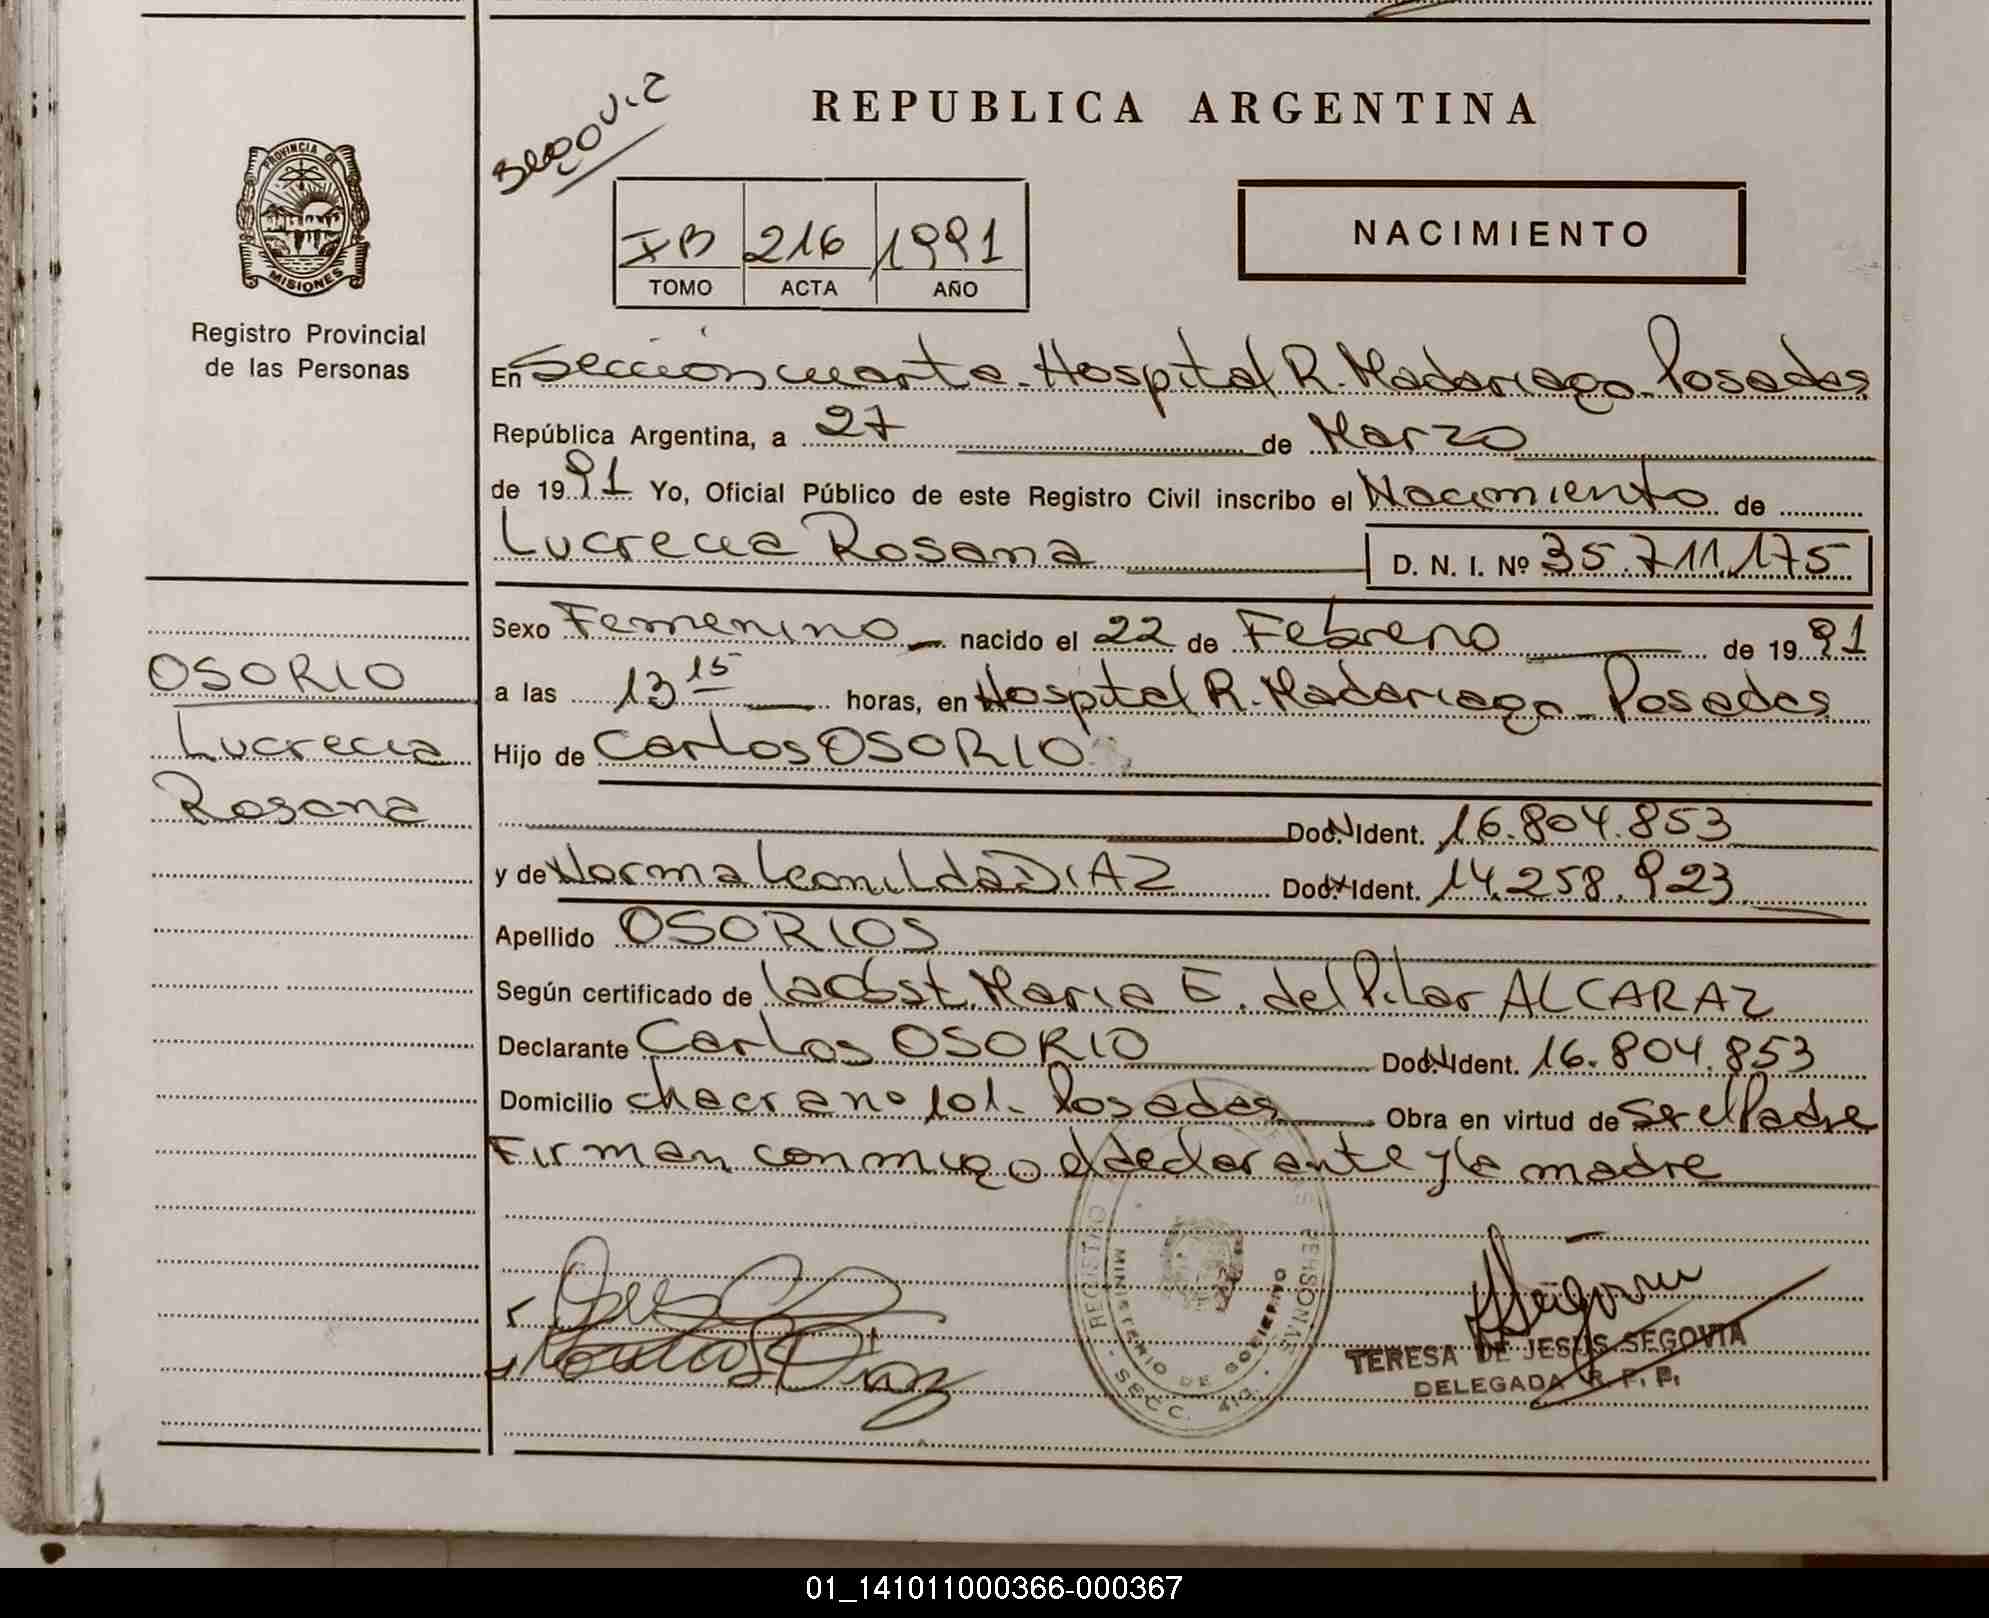 REPUBLICA ARGENTINA
Segovia
PROVINCIA DE
MISIONES
Registro Provincial
de las Personas
IB 216 1991
TOMO ACTA AÑO
NACIMIENTO
En Sección cuarta - Hospital R. Madariaga - Posadas
República Argentina, a 27 de Marzo
de 1991 Yo, Oficial Público de este Registro Civil inscribo el Nacimiento de
Lucrecia Rosana D. N. I. Nº 35.711.175
Sexo Femenino nacido el 22 de Febrero de 1991
a las 13 15 horas, en Hospital R. Madariaga - Posadas
Hijo de Carlos OSORIO
Doc. Ident. 16.804.853
y de Norma Leonilda DIAZ Doc. Ident. 14.258.923
Apellido OSORIOS
Según certificado de la Obst. Maria E. del Pilar ALCARAZ
Declarante Carlos OSORIO Doc. Ident. 16.804.853
Domicilio chacra nº 101 - Posadas Obra en virtud de ser el Padre
Firman conmigo el declarante y la madre
OSORIO
Lucrecia
Rosana
REGISTRO PERSONAS
MINISTERIO DE GOBIERNO
SECC. 4ta.
Diaz
Segovia
TERESA DE JESUS SEGOVIA
DELEGADA R. P. P.
01_141011000366-000367